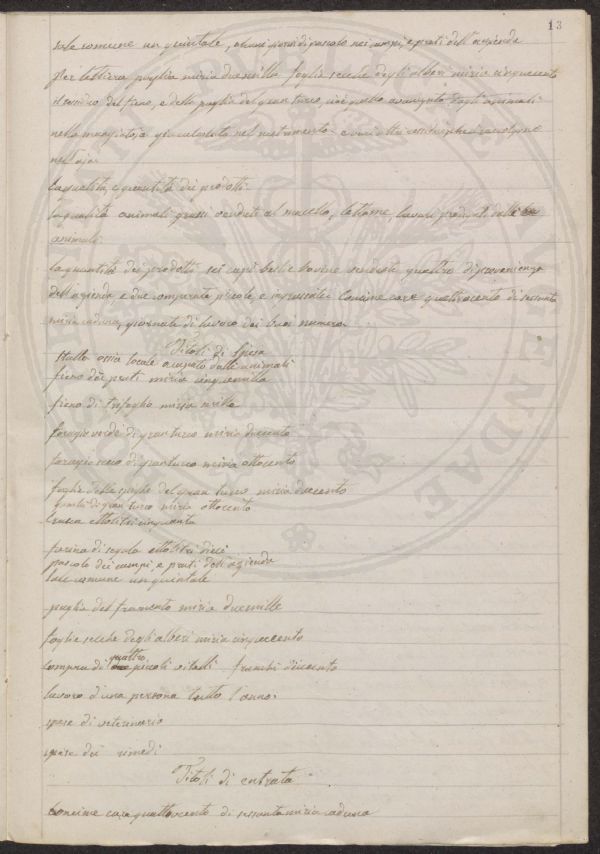 13
sale comune un quintale, alcuni giorni di pascolo nei campi, e prati dell'azienda
per lettiera paglia miria duemilla foglie secche degli alberi miria cinquecento
il residuo del fieno, e della paglia del gran turco, cioè quello avanzato dagli animali
nella mangiatoja
nell'aja.
la qualità, e quantità dei prodotti.
la qualità animali grassi venduti al macello, lettame lavori prodotti dalli
animali
la quantità dei prodotti sei capi bestie bovine vendute quattro di provenienza
dell'azienda e due comperate piccole, e ingrassate. Concime care quattrocento di sessanta
miria caduna, giornate di lavoro dei buoi numero.
Titoli di spesa
Stalla ossia locale occupato dalli animali
fieno dei prati miria cinquemilla
fieno di trifoglio miria mille
foraggio verde di granturco miria duecento
foraggio secco di granturco miria ottocento
foglie delle spighe del gran turco miria duecento
gran turco miria ottocento
crusca ettolitri cinquanta
farina di segala ettolitri dieci
pascolo dei campi, e prati dell'azienda
sale comune un quintale
paglia del framento miria duemille
foglie secche degli alberi miria cinquecento
compra di quattro piccoli vitelli franchi duecento
lavoro d'una persona tutto l'anno.
spese di veterinario
spese dei rimedi
Titoli di entrata
Concime care quattrocento di sessanta miria caduna